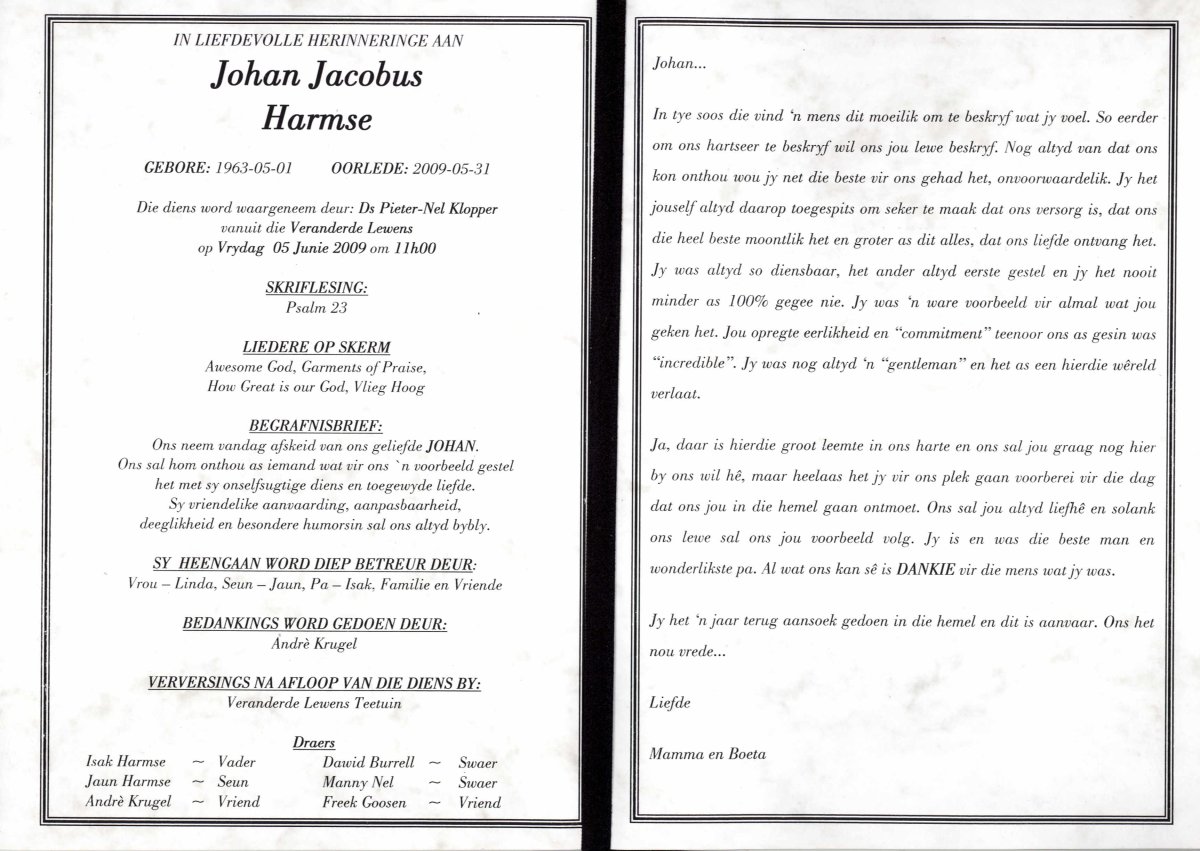 IN LIEFDEVOLLE HERINNERINGE AAN
Johan Jacobus
Harmse
GEBORE: 1963-05-01 OORLEDE: 2009-05-31
Die diens word waargeneem deur: Ds Pieter-Nel Klopper
vanuit die Veranderde Lewens
op Vrydag 05 Junie 2009 om 11h00
SKRIFLESING:
Psalm 23
LIEDERE OP SKERM
Awesome God, Garments of Praise,
How Great is our God, Vlieg Hoog
BEGRAFNISBRIEF:
Ons neem vandag afskeid van ons geliefde JOHAN.
Ons sal hom onthou as iemand wat vir ons `n voorbeeld gestel
het met sy onselfsugtige diens en toegewyde liefde.
Sy vriendelike aanvaarding, aanpasbaarheid,
deeglikheid en besondere humorsin sal ons altyd bybly.
SY HEENGAAN WORD DIEP BETREUR DEUR:
Vrou – Linda, Seun – Jaun, Pa – Isak, Familie en Vriende
BEDANKINGS WORD GEDOEN DEUR:
Andrè Krugel
VERVERSINGS NA AFLOOP VAN DIE DIENS BY:
Veranderde Lewens Teetuin
Draers
Isak Harmse ~ Vader Dawid Burrell ~ Swaer
Jaun Harmse ~ Seun Manny Nel ~ Swaer
Andrè Krugel ~ Vriend Freek Goosen ~ Vriend
Johan...
In tye soos die vind ‘n mens dit moeilik om te beskryf wat jy voel. So eerder
om ons hartseer te beskryf wil ons jou lewe beskryf. Nog altyd van dat ons
kon onthou wou jy net die beste vir ons gehad het, onvoorwaardelik. Jy het
jouself altyd daarop toegespits om seker te maak dat ons versorg is, dat ons
die heel beste moontlik het en groter as dit alles, dat ons liefde ontvang het.
Jy was altyd so diensbaar, het ander altyd eerste gestel en jy het nooit
minder as 100% gegee nie. Jy was ‘n ware voorbeeld vir almal wat jou
geken het. Jou opregte eerlikheid en “commitment” teenoor ons as gesin was
“incredible”. Jy was nog altyd ‘n “gentleman” en het as een hierdie wêreld
verlaat.
Ja, daar is hierdie groot leemte in ons harte en ons sal jou graag nog hier
by ons wil hê, maar heelaas het jy vir ons plek gaan voorberei vir die dag
dat ons jou in die hemel gaan ontmoet. Ons sal jou altyd liefhê en solank
ons lewe sal ons jou voorbeeld volg. Jy is en was die beste man en
wonderlikste pa. Al wat ons kan sê is DANKIE vir die mens wat jy was.
Jy het ‘n jaar terug aansoek gedoen in die hemel en dit is aanvaar. Ons het
nou vrede...
Liefde
Mamma en Boeta